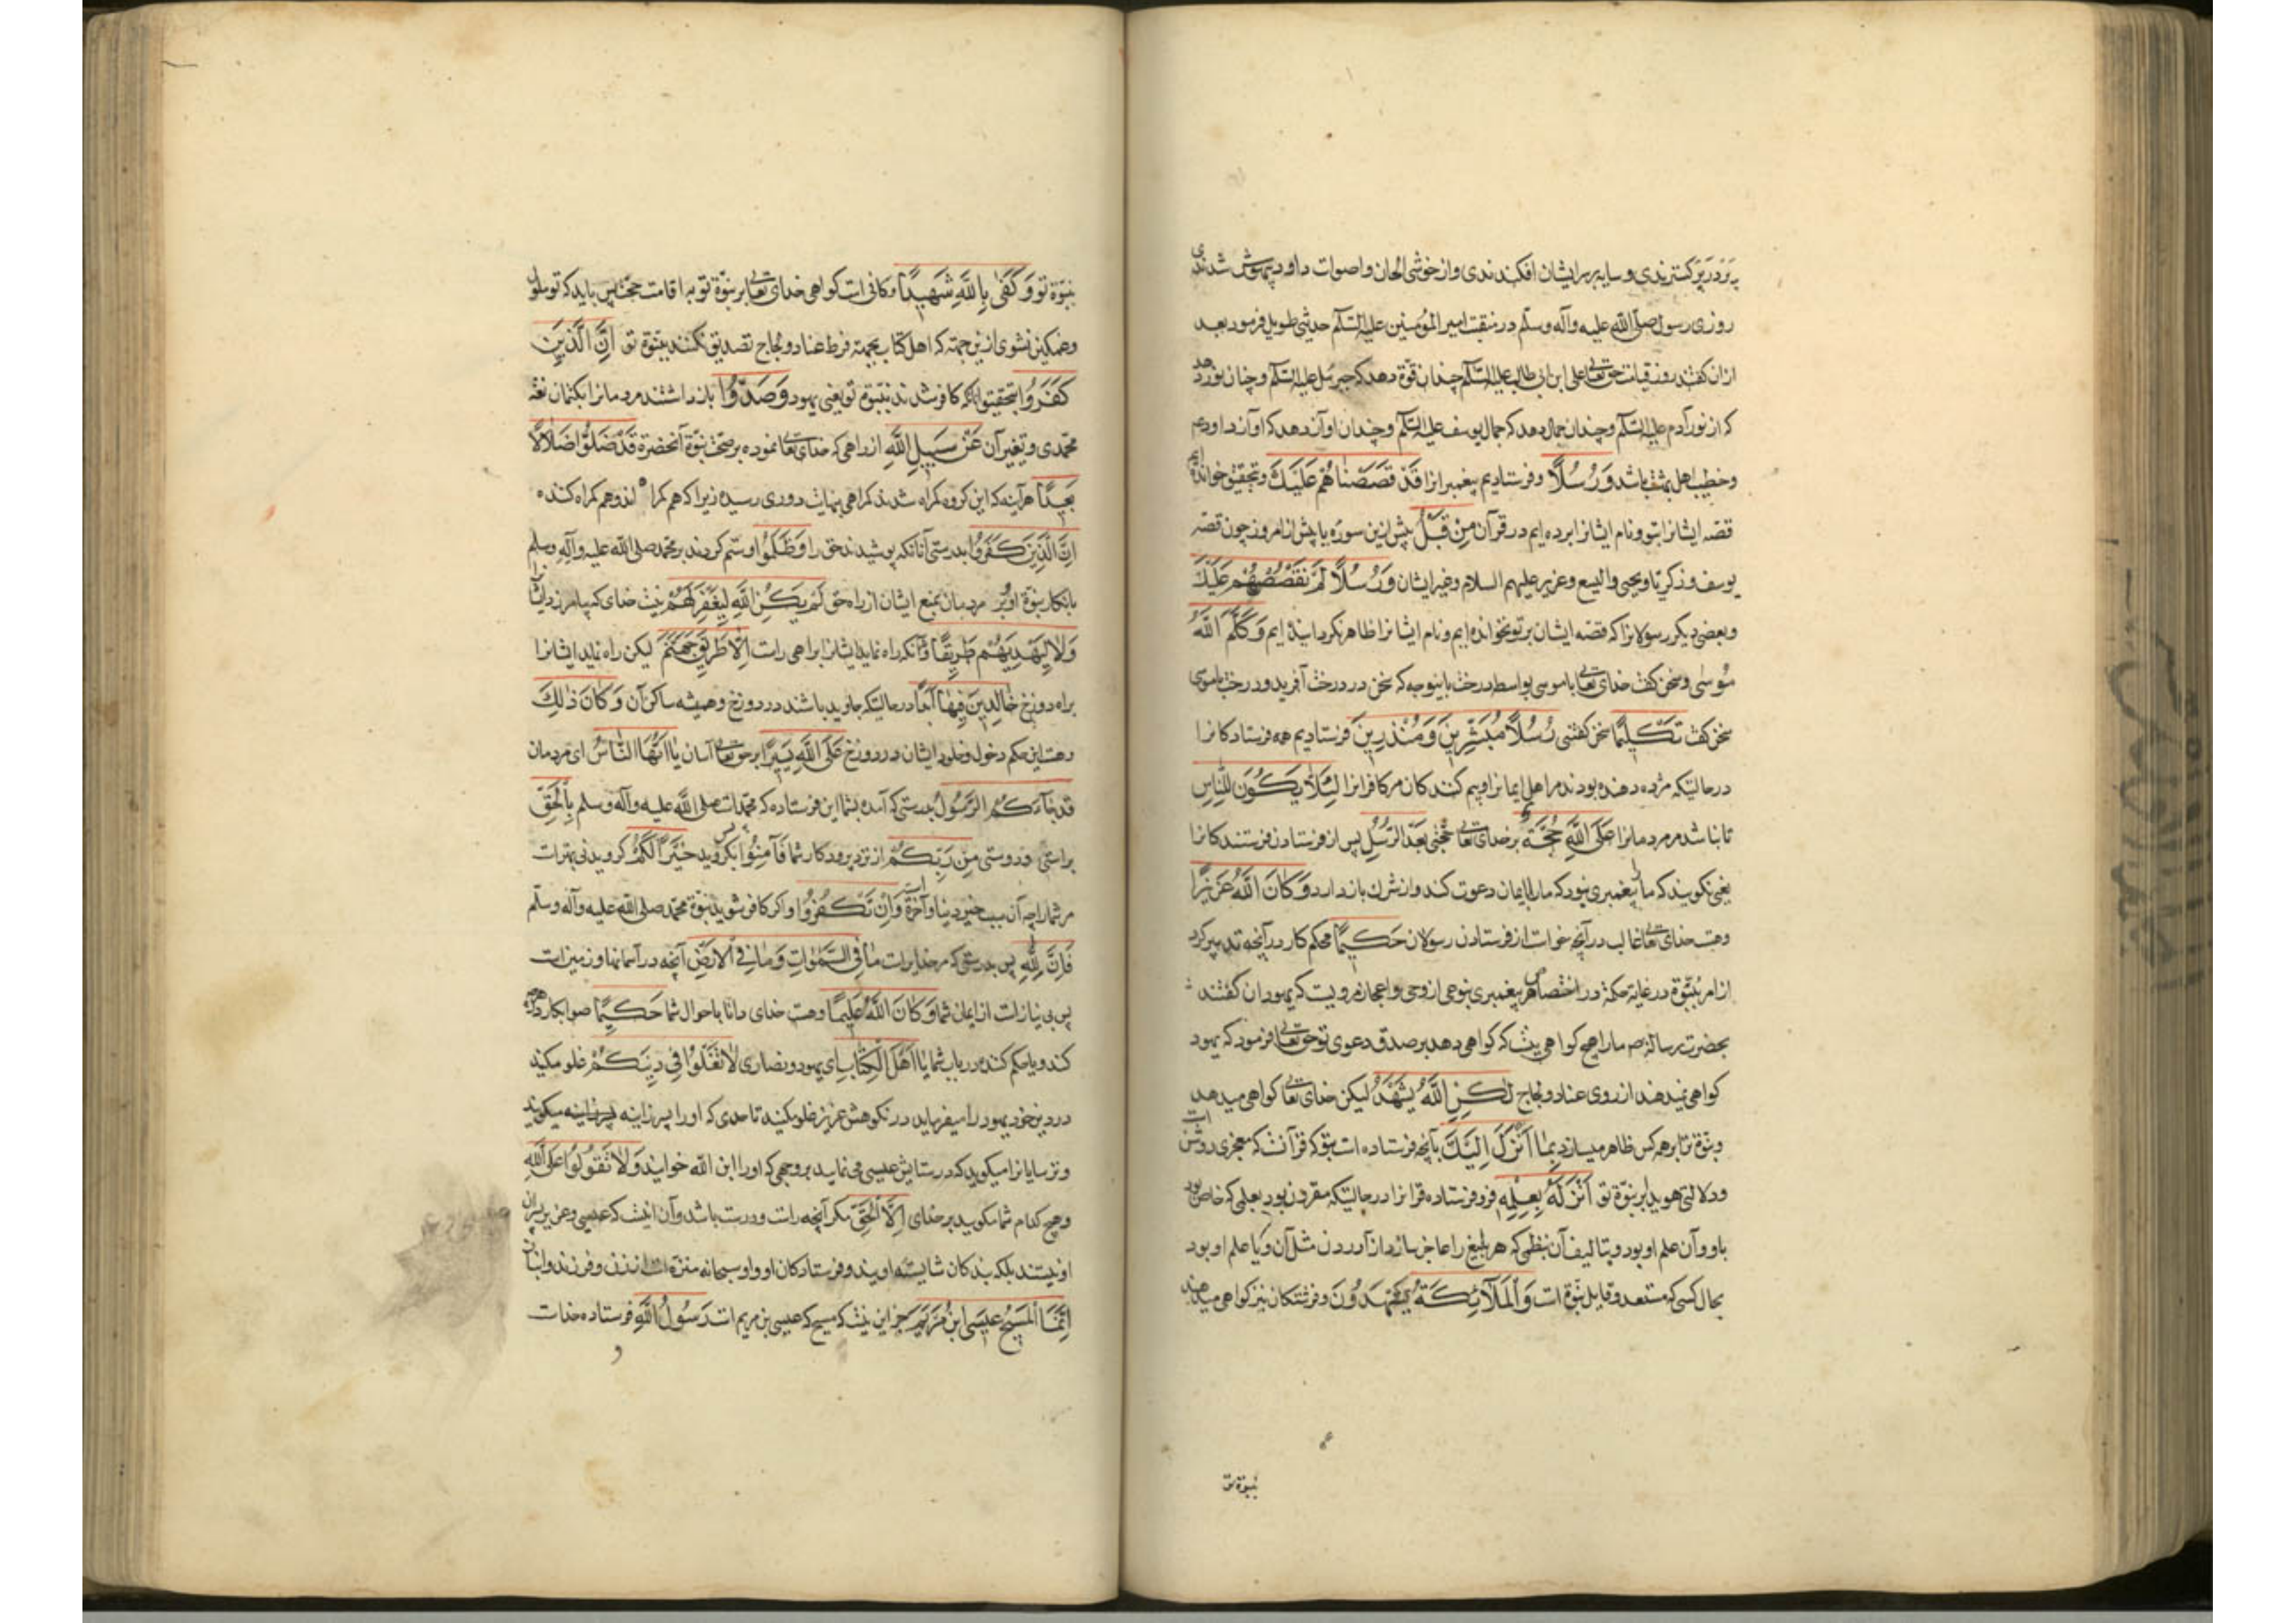 پر در پر کستریدندی و سایه بر سر ایشان افکندندی و از خوشی الحان و اصوات داود بیهوش شدندی
روزی رسول صلی الله علیه وآله وسلم در منقبت امیر المؤمنین علیه السلام حدیثی طویل فرمود بعد
ازان کفت در روز قیامت حق تعالی علی ابن ابی طالب علیه السلام چندان قوة دهد که جبرئیل علیه السلام و چندان نور دهد
که از نور آدم علیه السلام و چندان جمال دهد که جمال یوسف علیه السلام و چندان آواز دهد که آواز داود علیه
وخطیب اهل بهشت باشد وَرُسُلًا وفرستادیم پیغمبرانرا قَدْ قَصَصْنَاهُمْ عَلَيْكَ وتحقیق خوانده ایم
قصه ایشانرا بتو ونام ایشانرا برده ایم در قرآن مِنْ قَبْلُ پیش ازین سوره یا پیش از امروز چون قصه
یوسف وزکریا ویحیی والیسع وعزیر علیهم السلام وغیر ایشان وَرُسُلًا لَمْ نَقْصُصْهُمْ عَلَيْكَ
وبعضی دیکر رسولانرا که قصه ایشان بر تو نخوانده ایم ونام ایشانرا ظاهر نکردانیده ایم وَكَلَّمَ اللَّهُ
مُوسَى وسخن کفت خدای تعالی با موسی بواسطه درخت باینوجه که سخن در درخت آفرید ودرخت با موسی
سخن کفت تَكْلِيمًا سخن کفتنی رُسُلًا مُبَشِّرِينَ وَمُنْذِرِينَ فرستادیم همه فرستادکانرا
درحالتیکه مژده دهنده بودند مر اهل ایمانرا وبیم کنندکان مر کافرانرا لِئَلَّا يَكُونَ لِلنَّاسِ
تا نباشد مر مردمانرا عَلَى اللَّهِ حُجَّةٌ بر خدای تعالی حجتی بَعْدَ الرُّسُلِ پس از فرستادن فرستندکانرا
یعنی نکویند که ما را پیغمبری نبود که ما را بایمان دعوت کند واز شرك باز دارد وَكَانَ اللَّهُ عَزِيزًا
وهست خدای تعالی غالب در آنچه خواست از فرستادن رسولان حَكِيمًا محکم کار در آنچه تدبیر کرد
از امر نبوّة در غایة حکمة در اختصاص هر پیغمبری بنوعی از وحی واعجاز مرویست که یهودان کفتند
بحضرت رسالة ص ما را هیچ کواهی نیست که کواهی دهد بر صدق دعوی تو حق تعالی فرمود که یهود
کواهی نمیدهند از روی عناد ولجاج لَكِنِ اللَّهُ يَشْهَدُ لیکن خدای تعالی کواهی میدهد
ونبوّة ترا بر همه کس ظاهر میسازد بِمَا أَنْزَلَ إِلَيْكَ بآنچه فرستاده است بتو که قرآنست که معجزی روشن است
ودلالتی هویدا بر نبوّة تو أَنْزَلَهُ بِعِلْمِهِ فرو فرستاده قرآنرا درحالتیکه مقرون بود بعلمی که خاص بود
باو وآن علم او بود وبتالیف آن بنظمی که هر بلیغ را عاجز سازد از آوردن مثل آن ویا علم او بود
بحال کسی که مستعد وقابل نبوّة است وَالْمَلَائِكَةُ يَشْهَدُونَ وفرشتکان نیز کواهی میدهند
بنبوّة تو
بنبوّة تو وَكَفَى بِاللَّهِ شَهِيدًا وکافی است کواهی خدای تعالی بر نبوّة تو به اقامت حجت پس باید که تو ملول
وغمکین نشوی ازین جهة که اهل کتاب بجهة فرط عناد ولجاج تصدیق نکنند بنبوّة تو إِنَّ الَّذِينَ
كَفَرُوا بتحقیق آنانکه کافر شدند بنبوّة تو یعنی یهود وَصَدُّوا باز داشتند مردمانرا بکتمان نعت
محمّدی وتغیر آن عَنْ سَبِيلِ اللَّهِ از راهی که خدای تعالی نموده بر صحت نبوّة آنحضرة قَدْ ضَلُّوا ضَلَالًا
بَعِيدًا هرآینه که این کروه کمراه شدند کمراهی بنهایت دوری رسیده زیرا که هم کمراه اند وهم کمراه کننده
إِنَّ الَّذِينَ كَفَرُوا بدرستی آنانکه پوشیدند حق را وَظَلَمُوا وستم کردند بر محمد صلی الله علیه وآله وسلم
بانکار نبوّة او وبر مردمان بمنع ایشان از راه حق لَمْ يَكُنِ اللَّهُ لِيَغْفِرَ لَهُمْ نیست خدای که بیامرزد ایشانرا
وَلَا لِيَهْدِيَهُمْ طَرِيقًا وآنکه راه نماید ایشانرا براهی راست إِلَّا طَرِيقَ جَهَنَّمَ لیکن راه نماید ایشانرا
براه دوزخ خَالِدِينَ فِيهَا أَبَدًا درحالتیکه جاوید باشند در دوزخ وهمیشه ساکن آن وَكَانَ ذَلِكَ
وهست این حکم دخول وخلود ایشان در دوزخ عَلَى اللَّهِ يَسِيرًا بر حق تعالی آسان يَا أَيُّهَا النَّاسُ ای مردمان
قَدْ جَاءَكُمُ الرَّسُولُ بدرستی که آمده بشما این فرستاده که محمّد است صلی الله علیه وآله وسلم بِالْحَقِّ
براستی ودرستی مِنْ رَبِّكُمْ از نزد پروردکار شما فَآمِنُوا پس بکروید خَيْرًا لَكُمْ کرویدنی بهتر است
مر شما را چه آن سبب خیر دنیا وآخرة است وَإِنْ تَكْفُرُوا واکر کافر شوید بنبوّة محمّد صلی الله علیه وآله وسلم
فَإِنَّ لِلَّهِ پس بدرستی که مر خدایراست مَا فِي السَّمَوَاتِ وَمَا فِي الْأَرْضِ آنچه در آسمانها وزمین است
پس بی نیاز است از ایمان شما وَكَانَ اللَّهُ عَلِيمًا وهست خدای دانا باحوال شما حَكِيمًا صوابکار در آنچه
کند ویا حکم کننده در باب شما يَا أَهْلَ الْكِتَابِ ای یهود ونصاری لَا تَغْلُوا فِي دِينِكُمْ غلو مکنید
در دین خود یهود را میفرماید در نکوهش عزیر غلو مکنید تا حدی که او را پسر زانیه میکویند
وترسایانرا میکوید که در ستایش عیسی می نمایند بر وجهی که او را ابن الله خوانید وَلَا تَقُولُوا عَلَى اللَّهِ
وهیچ کدام شما مکویید بر خدای إِلَّا الْحَقَّ مکر آنچه راست ودرست باشد وآن اینست که عیسی وعزیر پسران
او نیستند بلکه بندکان شایسته اویند وفرستادکان او واو سبحانه منزه است از زن وفرزند وانباز
إِنَّمَا الْمَسِيحُ عِيسَى ابْنُ مَرْيَمَ جز این نیست که مسیح که عیسی بن مریم است رَسُولُ اللَّهِ فرستاده خداست
و